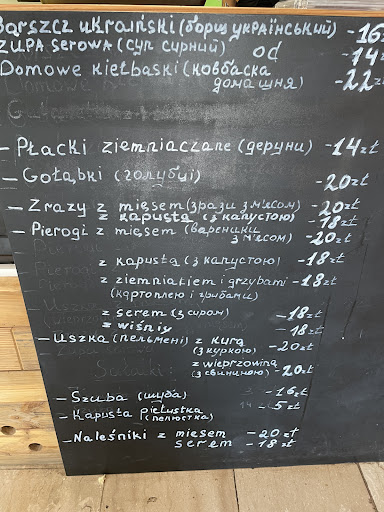 Barszcz ukraiński (борщ український) -16
Zupa serowa (суп сирний) od -14
Domowe kiełbaski (ковбаска
домашня) -22zł
- Płacki ziemniaczane (деруни) -14zł
- Gołąbki (голубці) -20zł
- Zrazy z mięsem (зрази з м'ясом) -20zł
z kapustą (з капустою) -18zł
- Pierogi z mięsem (вареники
з м'ясом) -20zł
z kapustą (з капустою) -18zł
z ziemniakiem i grzybami -18zł
(картоплею і грибами)
z serem (з сиром) -18zł
z wiśnią -18zł
- Uszka (пельмені) z kurą
(з куркою) -20zł
z wieprzowiną
(з свининою) -20zł
Sałatki:
- Szuba (шуба) -16zł
- Kapusta pielustka
(пелюстка) -5zł
- Naleśniki z mięsem -20zł
serem -18zł